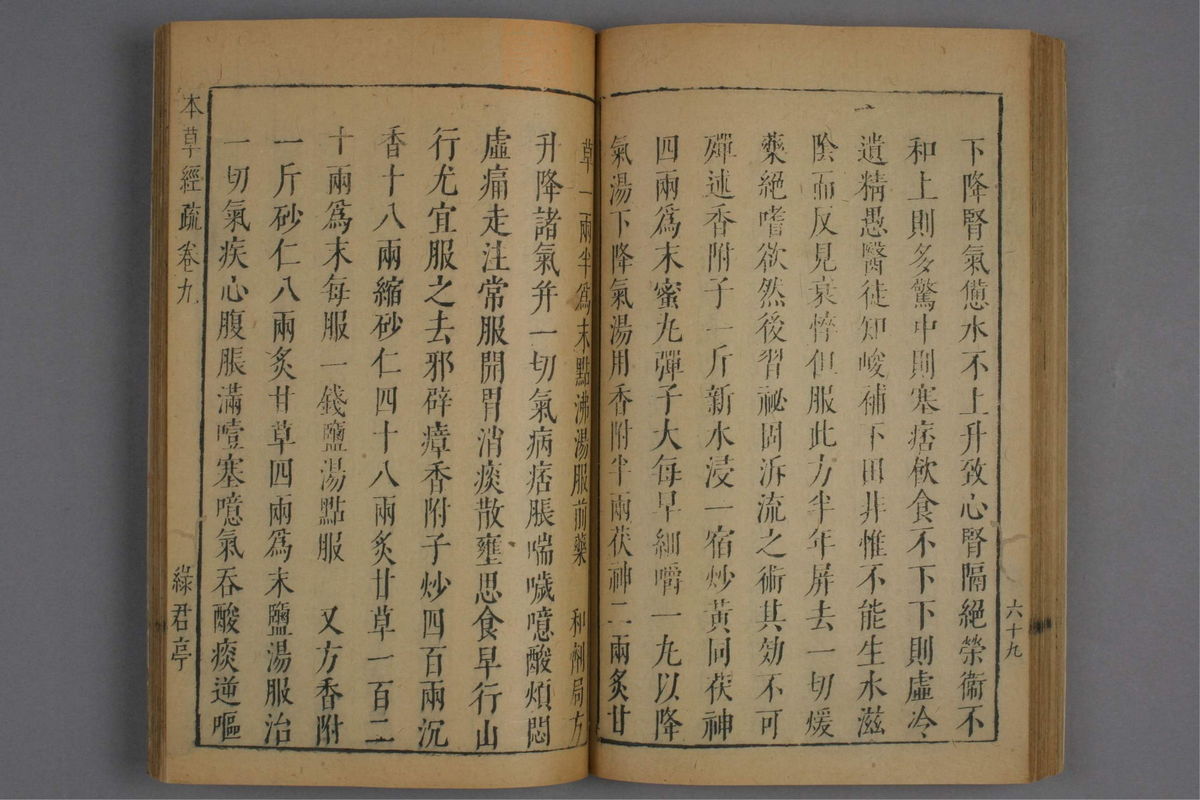 六十九
下降腎氣憊水不上升致心腎隔絕榮衞不
和上則多驚中則塞痞飲食不下下則虛冷
遺精愚醫徒知峻補下田非惟不能生水滋
陰而反見衰悴但服此方半年屏去一切煖
藥絕嗜欲然後習祕固泝流之術其効不可
殫述香附子一斤新水浸一宿炒黃同茯神
四兩爲末蜜丸彈子大每早細嚼一丸以降
氣湯下降氣湯用香附半兩茯神二兩炙甘
草一兩半爲末點沸湯服前藥　和劑局方
升降諸氣并一切氣病痞脹喘噦噫酸煩悶
虛痛走注常服開胃消痰散壅思食早行山
行尤宜服之去邪辟瘴香附子炒四百兩沉
香十八兩縮砂仁四十八兩炙甘草一百二
十兩爲末每服一錢鹽湯點服　又方香附
一斤砂仁八兩炙甘草四兩爲末鹽湯服治
一切氣疾心腹脹滿噎塞噫氣吞酸痰逆嘔
本草經疏 卷九
綠君亭